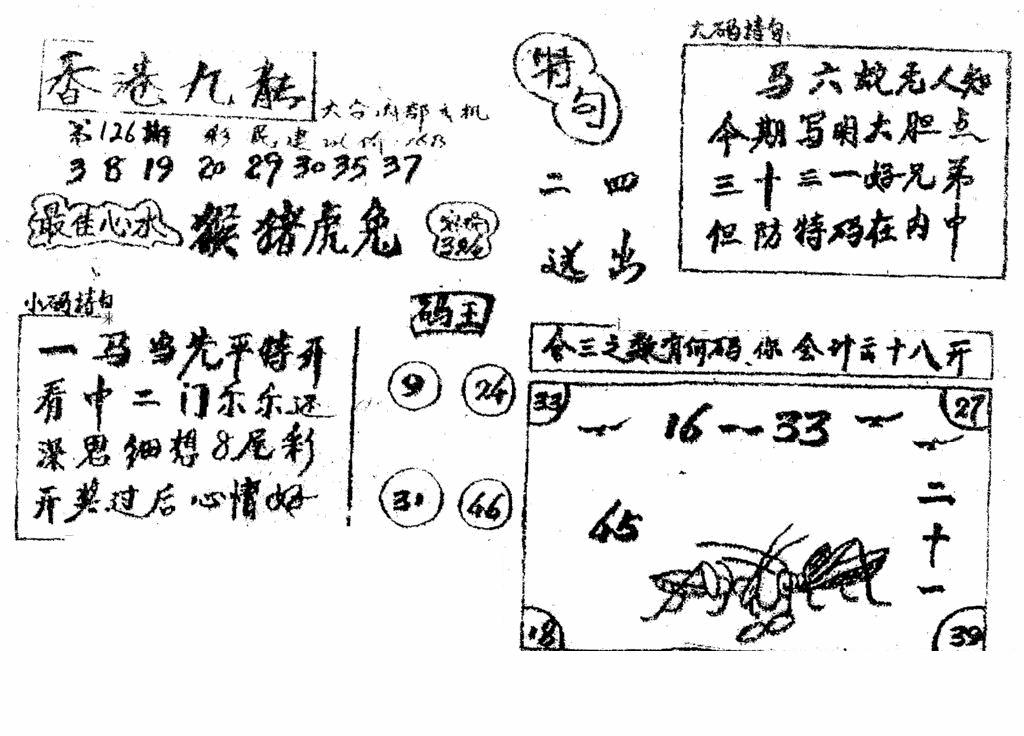 香港九龍
第126期
3 8 19 20 29 30 35 37
最佳心水
猴猪虎兔
小码特自
一马当先平特开
看中二门乐乐还来
深思细想8尾彩
开奖过后心情好
码王
9 24
31 46
特句
二四
送出
大码特自
马六蛇无人知
今期写明大胆点
三十三一好兄弟
但防特码在内中
合三之数有何码、你会计云十八开
33 27
16—33
45
二十一
18 39